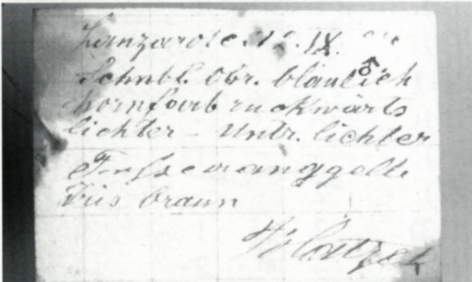 Lanzarote. 1?. IX.
Schnbl. Obr. bläulich
hornfarb ruckwärts
lichter – Untr. lichter
Füsse oranggelb
Iris braun